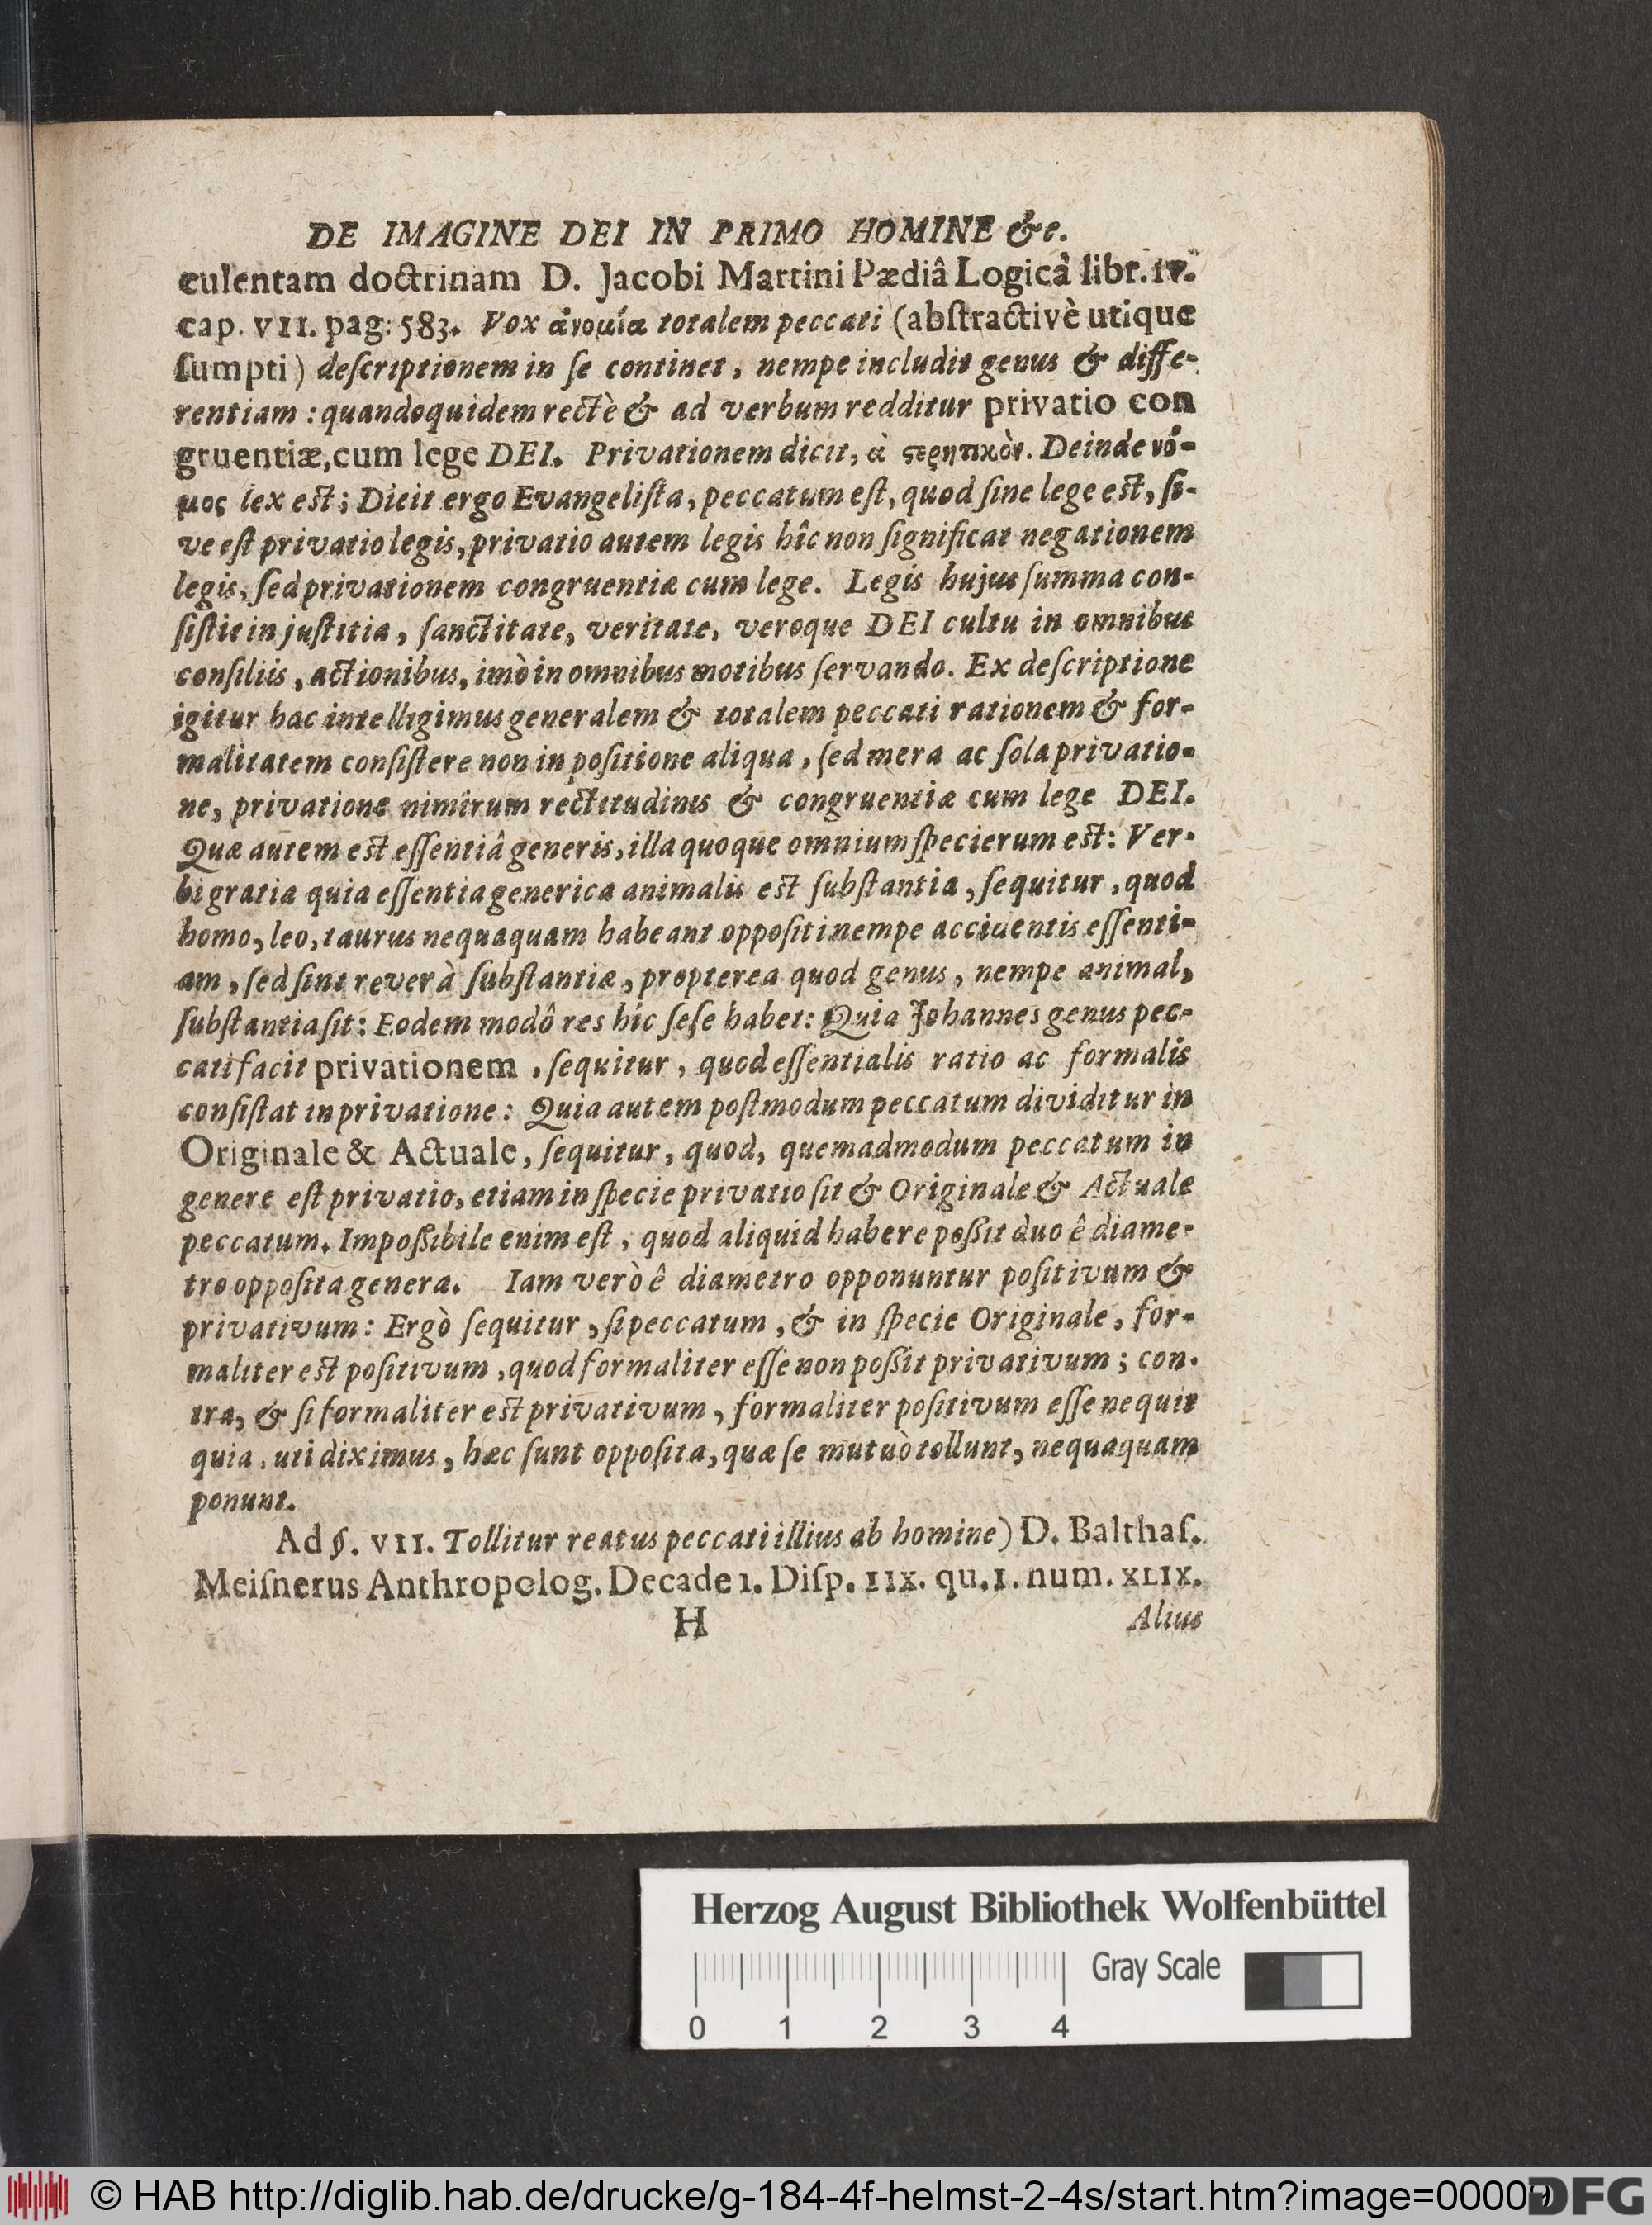 DE IMAGINE DEI IN PRIMO HOMINE &c.
culentam doctrinam D. Jacobi Martini Pædiâ Logicâ libr. IV.
cap. VII. pag: 583. Vox ἀνομία totalem peccati (abſtractivè utique
ſumpti) deſcriptionem in ſe continet, nempe includit genus & diffe-
rentiam: quandoquidem rectè & ad verbum redditur privatio con
gruentiæ, cum lege DEI. Privationem dicit, ἀ ϛερητικὸν. Deinde νό-
μος lex eſt; Dicit ergo Evangeliſta, peccatum eſt, quod ſine lege eſt, ſi-
ve eſt privatio legis, privatio autem legis hîc non ſignificat negationem
legis, ſed privationem congruentiæ cum lege. Legis hujus ſumma con-
ſiſtit in juſtitia, ſanctitate, veritate, veroque DEI cultu in omnibus
conſiliis, actionibus, imò in omnibus motibus ſervando. Ex deſcriptione
igitur hac intelligimus generalem & totalem peccati rationem & for-
malitatem conſiſtere non in poſitione aliqua, ſed mera ac ſola privatio-
ne, privatione nimirum rectitudinis & congruentiæ cum lege DEI.
Quæ autem eſt eſſentiâ generis, illa quoque omnium ſpecierum eſt: Ver-
bi gratia quia eſſentia generica animalis eſt ſubſtantia, ſequitur, quod
homo, leo, taurus nequaquam habeant oppoſiti nempe accidentis eſſenti-
am, ſed ſint reverà ſubſtantiæ, propterea quod genus, nempe animal,
ſubſtantia ſit: Eodem modô res hîc ſeſe habet: Quia Johannes genus pec-
cati facit privationem, ſequitur, quod eſſentialis ratio ac formalis
conſiſtat in privatione: Quia autem poſtmodum peccatum dividitur in
Originale & Actuale, ſequitur, quod, quemadmodum peccatum in
genere eſt privatio, etiam in ſpecie privatio ſit & Originale & Actuale
peccatum. Impoßibile enim eſt, quod aliquid habere poßit duo ê diame-
tro oppoſita genera. Iam verò ê diametro opponuntur poſitivum &
privativum: Ergò ſequitur, ſi peccatum, & in ſpecie Originale, for-
maliter eſt poſitivum, quod formaliter eſſe non poßit privativum; con-
tra, & ſi formaliter eſt privativum, formaliter poſitivum eſſe nequit
quia, uti diximus, hæc ſunt oppoſita, quæ ſe mutuò tollunt, nequaquam
ponunt.
Ad §. VII. Tollitur reatus peccati illius ab homine) D. Balthaſ.
Meiſnerus Anthropolog. Decade 1. Diſp. IIX. qu. I. num. XLIX.
H Alius
Herzog August Bibliothek Wolfenbüttel
Gray Scale
0 1 2 3 4
© HAB http://diglib.hab.de/drucke/g-184-4f-helmst-2-4s/start.htm?image=00009
DFG